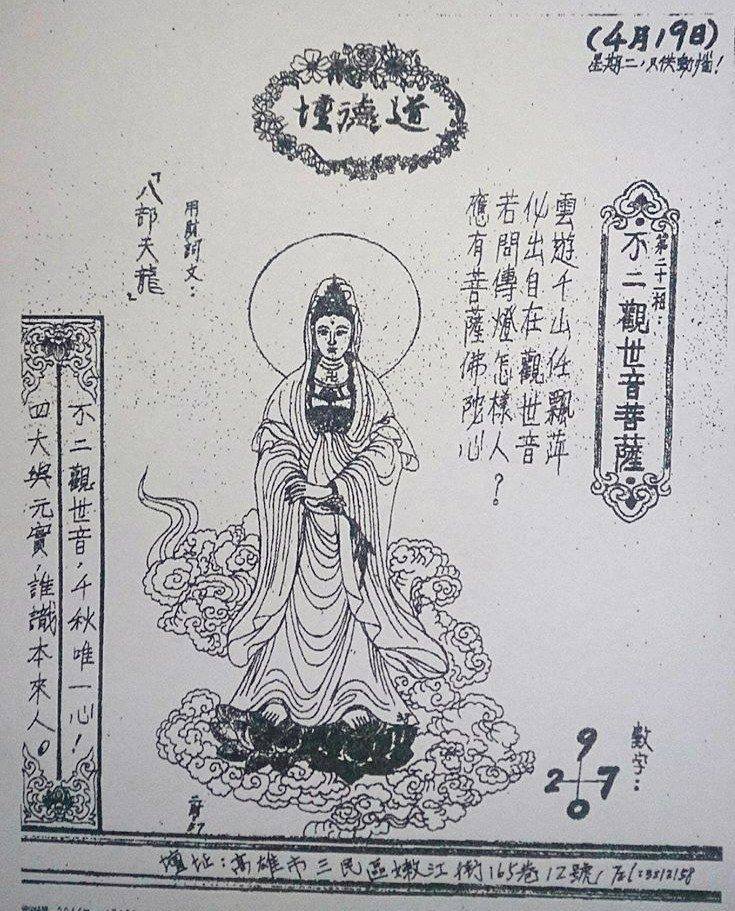 (4月19日)
星期二,只供動腦!
道德壇
第二十一相:
不二觀世音菩薩
雲遊千山任飄萍
化出自在觀世音
若問傳燈怎樣人?
應有菩薩佛陀心
「八部天龍」
不二觀世音,千秋唯一心!
四大與元實,誰識本來人。
數字:
9
2 7
0
壇址:高雄市三民區嫩江街165巷12號,Tel:3212158